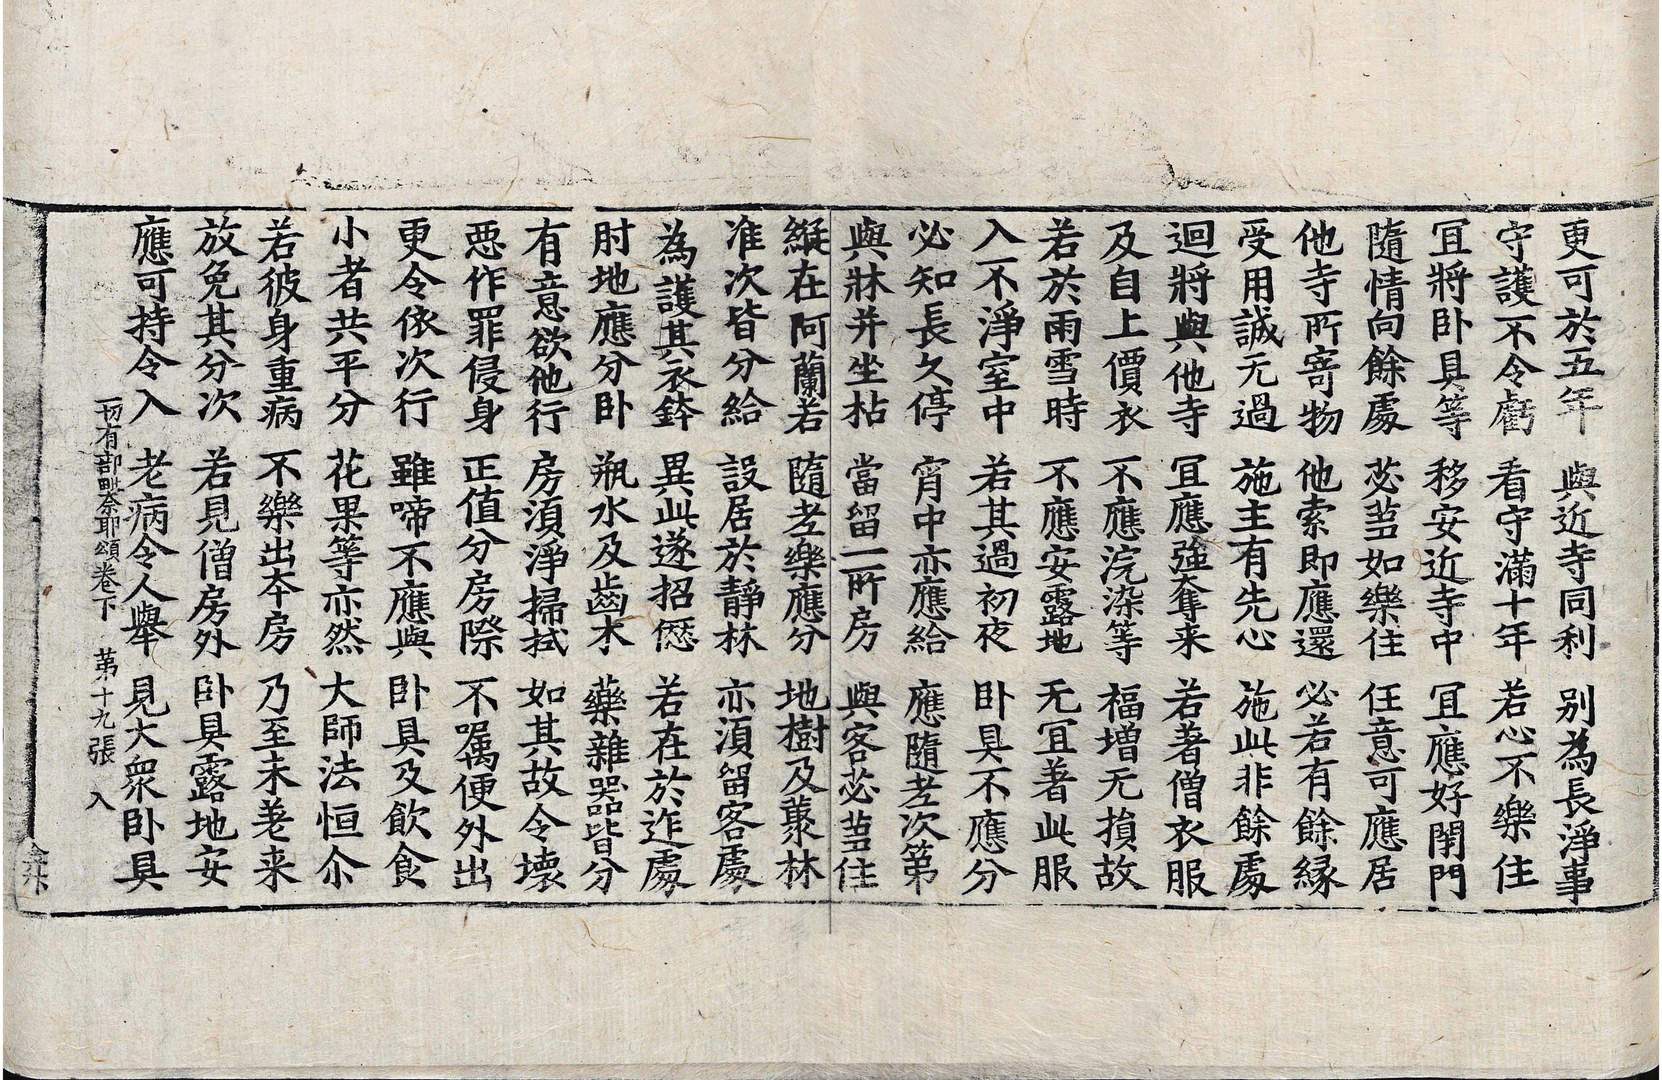 更可於五年　與近寺同利　别為長淨事
守護不令虧　看守滿十年　若心不樂住
冝將卧具等　移安近寺中　冝應好閇門
隨情向餘處　苾芻如樂住　任意可應居
他寺所寄物　他索即應還　必若有餘縁
受用誠无過　施主有先心　施此非餘處
迴將與他寺　冝應強奪来　若著僧衣服
及自上價衣　不應浣染等　福增无損故
若於雨雪時　不應安露地　无冝著此服
入不淨室中　若其過初夜　卧具不應分
必知長久停　宵中亦應給　應隨老次第
與牀并坐枮　當留一二所房　與客苾芻住
縱在阿蘭若　隨老樂應分　地樹及藂林
准次皆分給　設居於靜林　亦湏留客處
為護其衣鉢　異此遂招㥶　若在於迮處
肘地應分卧　瓶水及齒木　藥雜器皆分
有意欲他行　房湏淨掃拭　如其故令壞
惡作罪侵身　正值分房際　不嘱便外出
更令依次行　雖啼不應與　卧具及飲食
小者共平分　花果等亦然　大師法恒尒
若彼身重病　不樂出夲房　乃至未差来
放免其分次　若見僧房外　卧具露地安
應可持令入　老病令人轝　見大衆卧具
一切有部毗奈耶頌卷下　第十九張　入